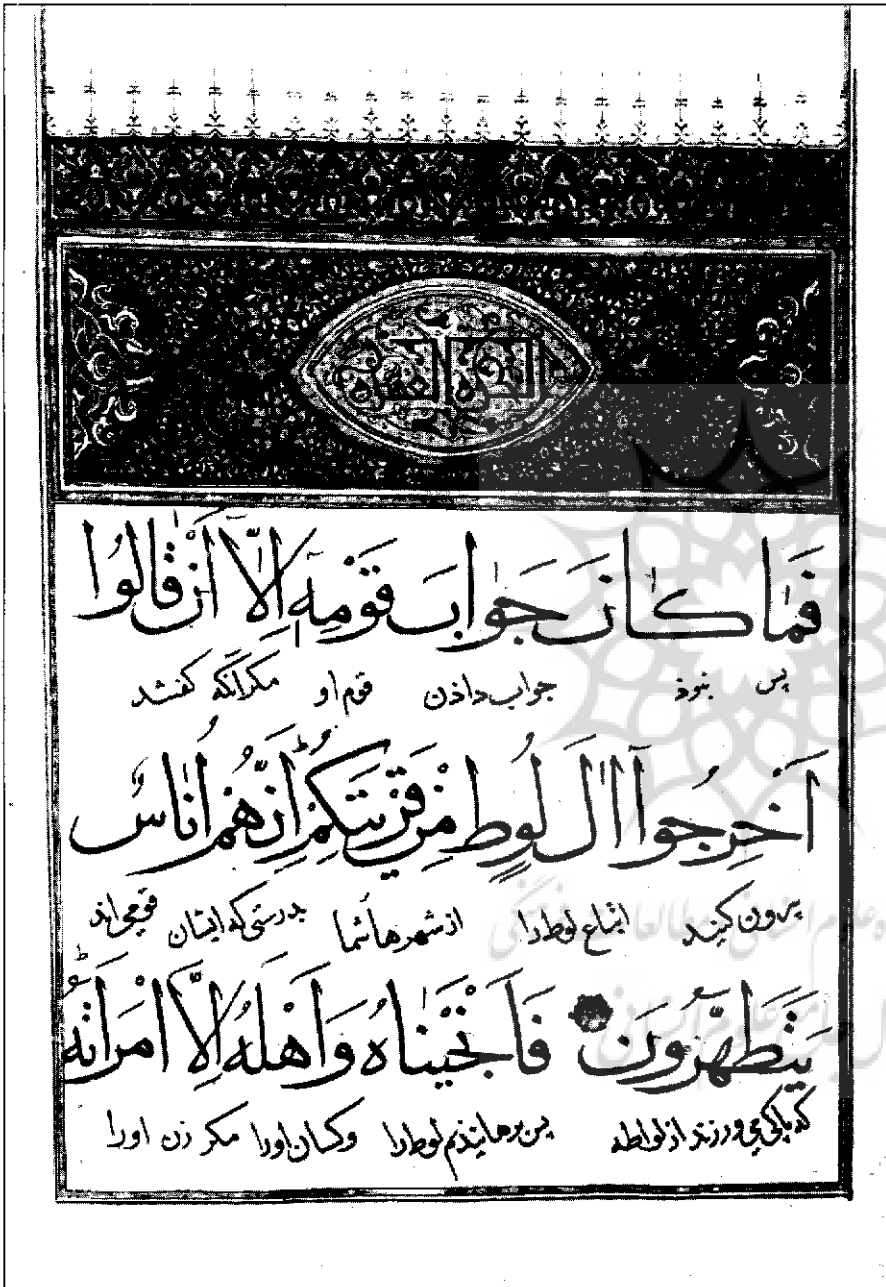 فَمَا كَانَ جَوَابَ قَوْمِهِ إِلَّا أَنْ قَالُوا
پس نبوذ جواب دادن قوم او مگر آنکه گفتند
أَخْرِجُوا آلَ لُوطٍ مِنْ قَرْيَتِكُمْ إِنَّهُمْ أُنَاسٌ
بیرون کنید اتباع لوط را از شهرهاشما بدرستی که ایشان قومی اند
يَتَطَهَّرُونَ فَأَنْجَيْنَاهُ وَأَهْلَهُ إِلَّا امْرَأَتَهُ
که پاکی می ورزند از لواطه پس برهانیذیم لوط را وکسان اورا مکر زن اورا